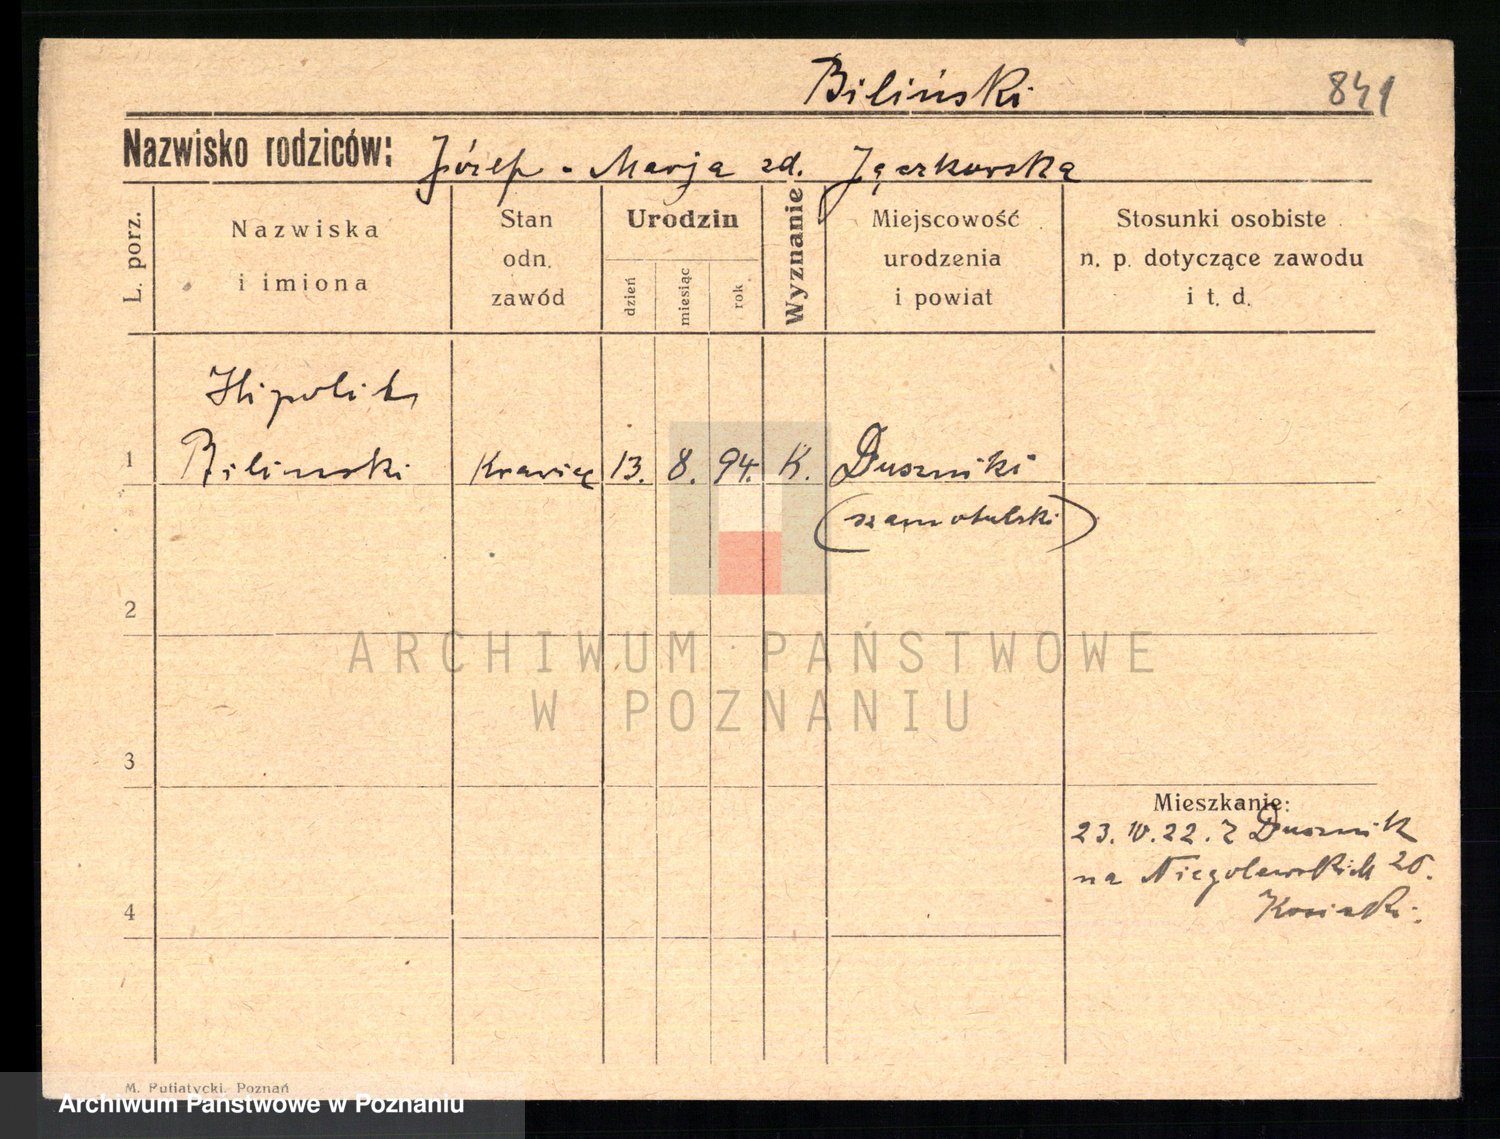 Biliński 841
Nazwisko rodziców: Józef - Marja zd. Jączkowska
L. porz.
Nazwiska
i imiona
Stan
odn.
zawód
Urodzin
dzień
miesiąc
rok
Wyznanie
Miejscowość
urodzenia
i powiat
Stosunki osobiste
n. p. dotyczące zawodu
i t. d.
Hipolit
1 Bilinski Krawiec 13. 8. 94. K. Duszniki
(szamotulski)
2
ARCHIWUM PAŃSTWOWE
W POZNANIU
3
Mieszkanie:
23. 10. 22. z Dusznik
na Niegolewskich 20.
4
M. Putiatycki, Poznań
Archiwum Państwowe w Poznaniu